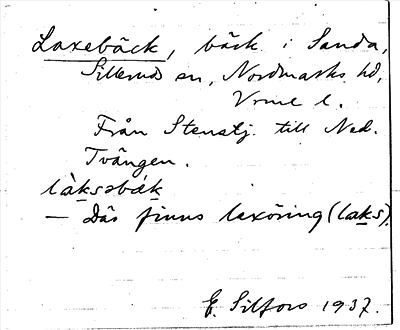 Laxebäck, bäck i Sanda,
Sillerud sn, Nordmarks hd,
Vrml l.
Från Stenstj. till Ned.
Tvängen.
làksəbæ̀k
— Där finns laxöring (laks).
E. Silfors 1937.